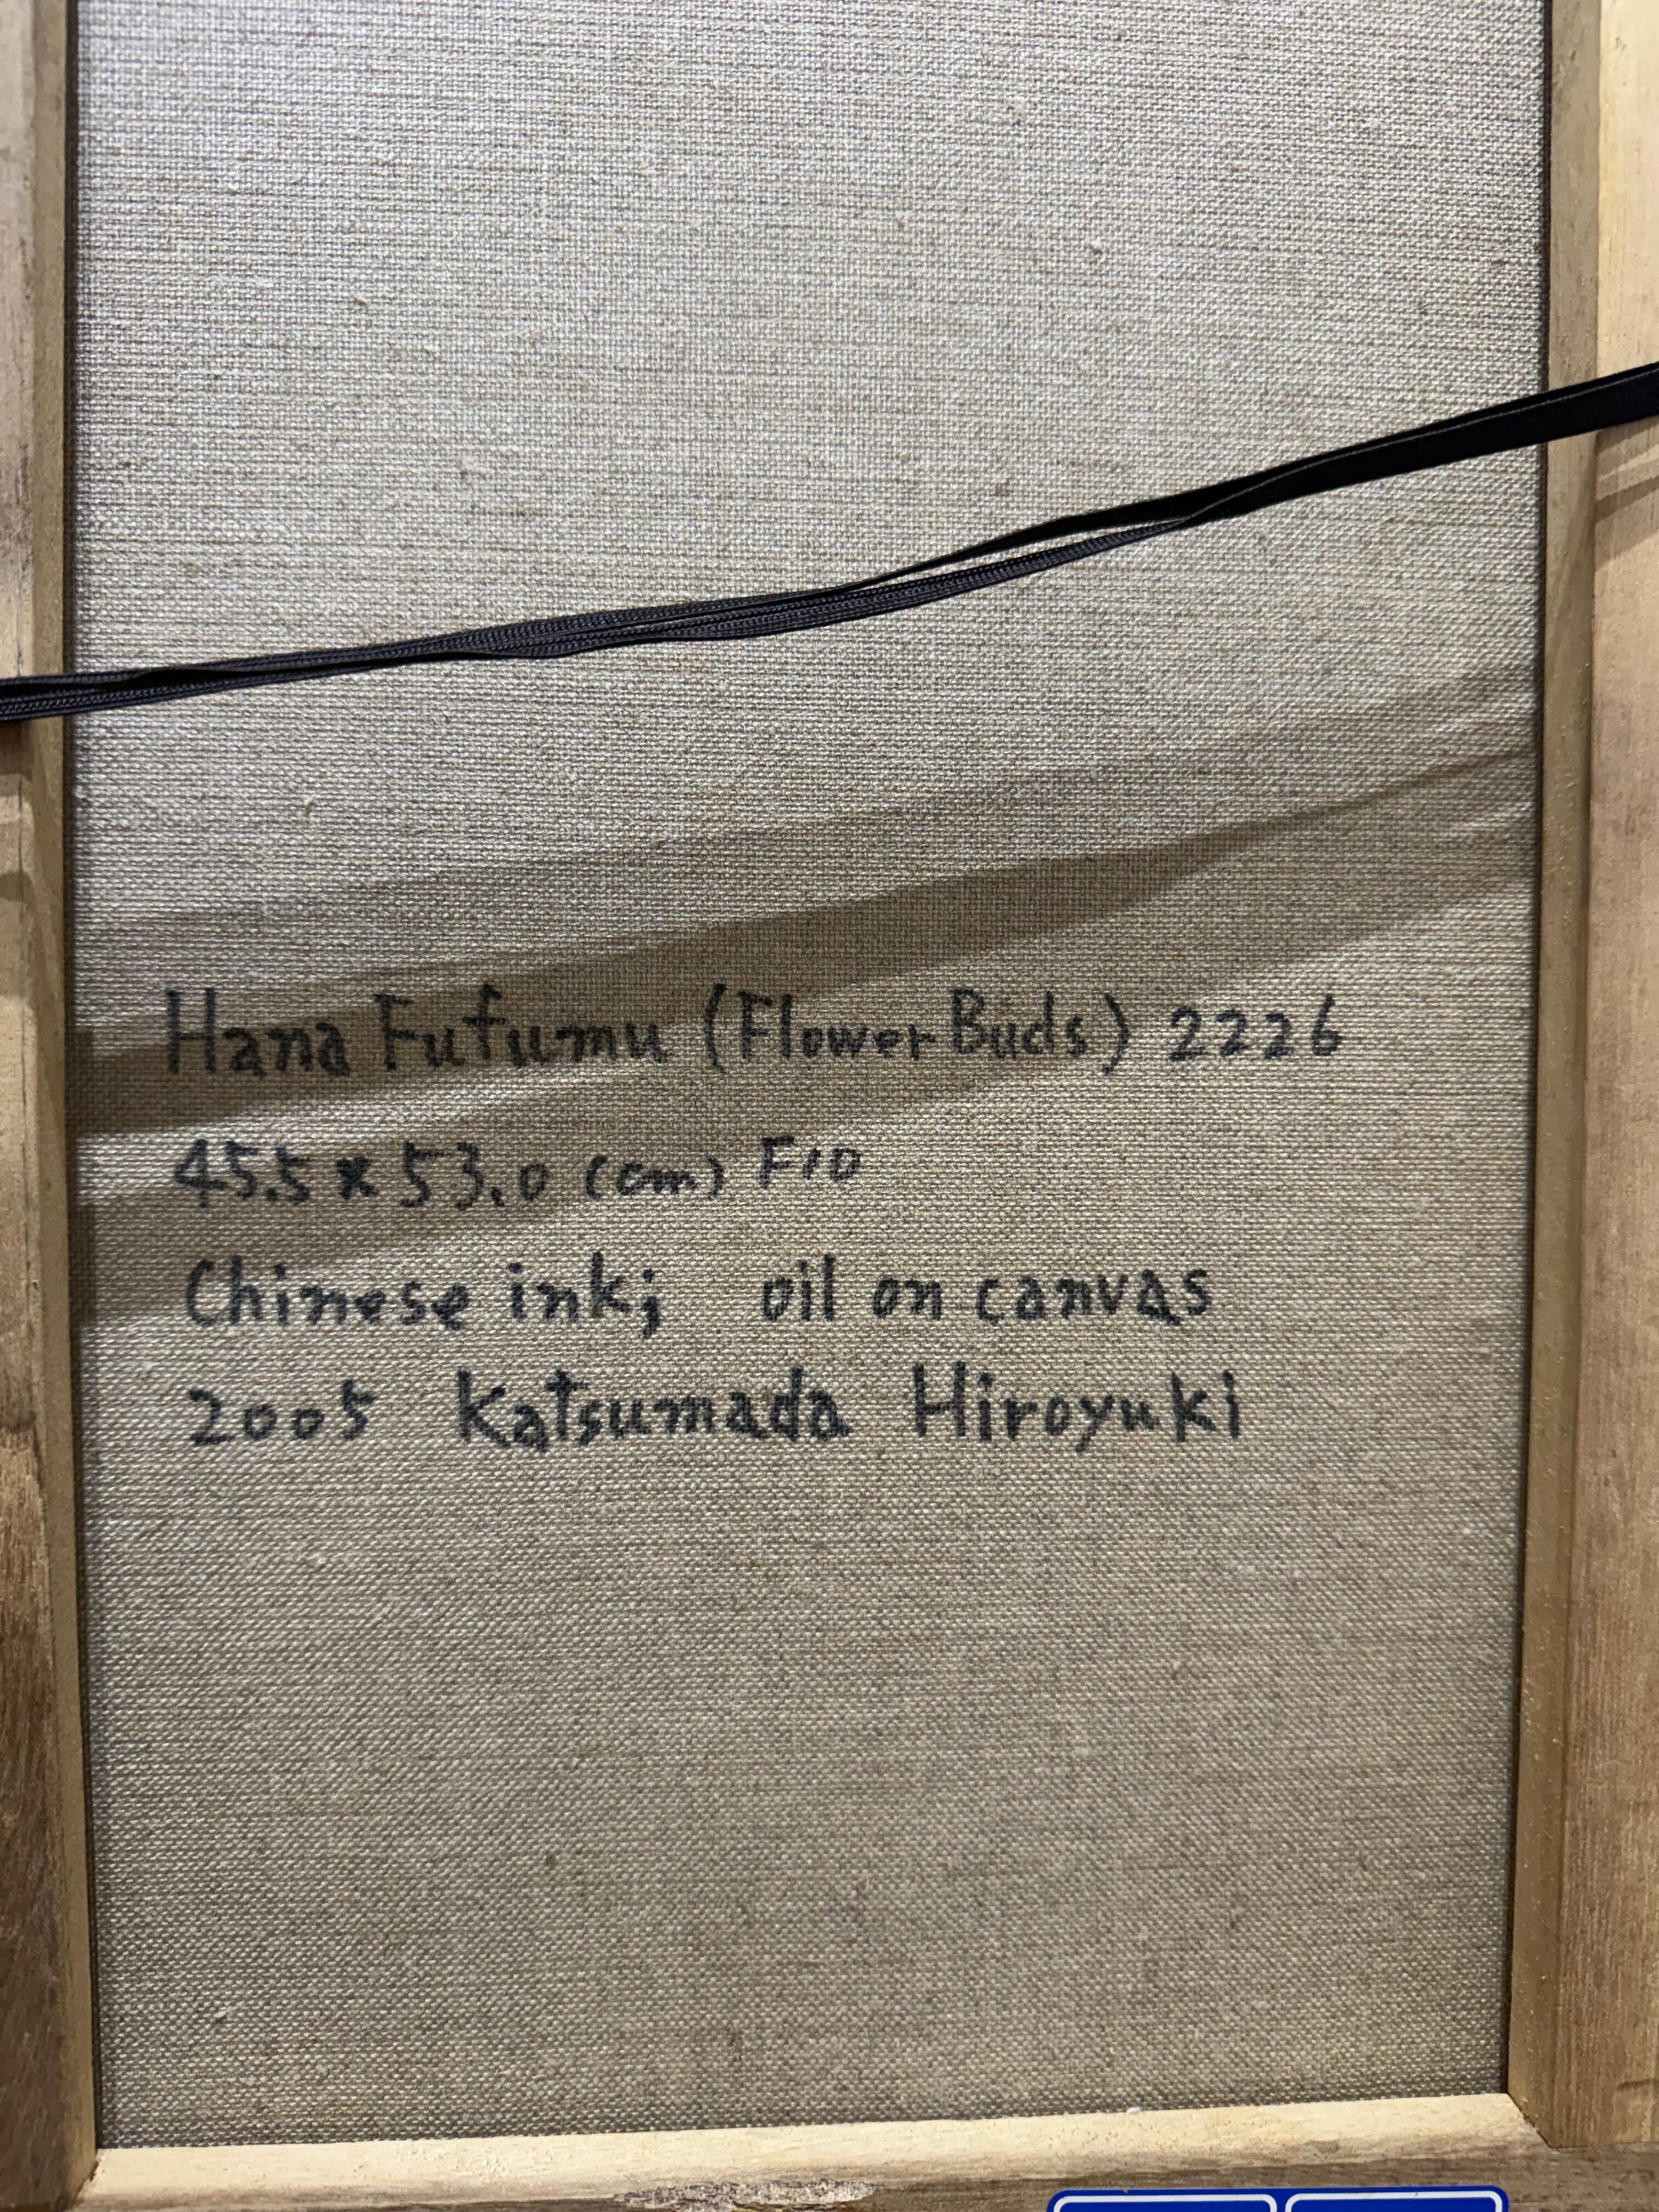 Hana Fufumu (Flower Buds) 2226
45.5 × 53.0 (cm) F10
Chinese ink; oil on canvas
2005 Katsumada Hiroyuki